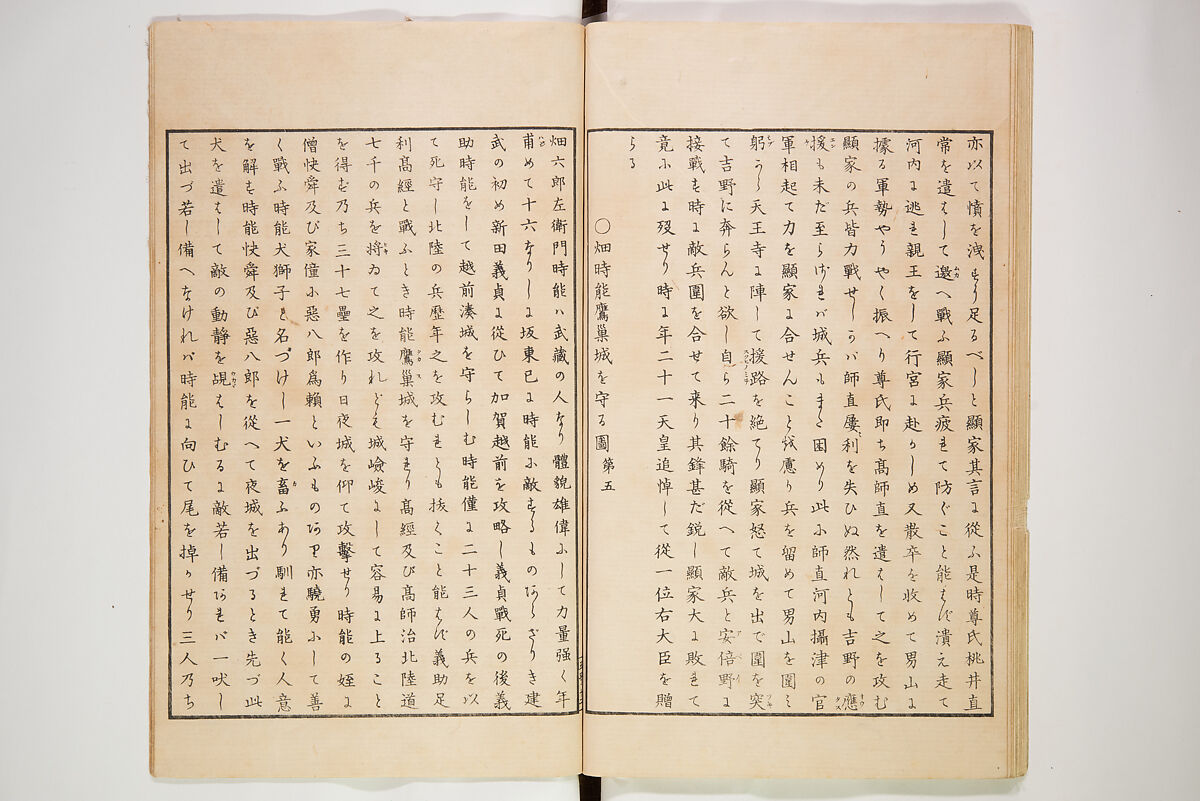 亦以て憤を洩すに足るべしと顯家其言に從ふ是時尊氏桃井直
常を遣はして邀へ戰ふ顯家兵疲れて防ぐこと能はず潰え走て
河内に逃れ親王をして行宮に赴かしめ又散卒を收めて男山に
據る軍勢やうやく振へり尊氏即ち髙師直を遣はして之を攻む
顯家の兵皆力戰せしかバ師直屢利を失ひぬ然れとも吉野の應
援も未だ至らざれバ城兵もまた困めり此に師直河内攝津の官
軍相起て力を顯家に合せんことを慮り兵を留めて男山を圍ミ
躬から天王寺に陣して援路を絶てり顯家怒て城を出で圍を突
て吉野に奔らんと欲し自ら二十餘騎を從へて敵兵と安倍野に
接戰す時に敵兵圍を合せて来り其鋒甚だ鋭し顯家大に敗れて
竟に此に歿せり時に年二十一天皇追悼して從一位右大臣を贈
らる
〇畑時能鷹巢城を守る圖第五
畑六郎左衛門時能ハ武藏の人なり體貌雄偉にして力量强く年
甫めて十六なりしに坂東已に時能に敵するものあらざりき建
武の初め新田義貞に從ひて加賀越前を攻略し義貞戰死の後義
助時能をして越前湊城を守らしむ時能僅に二十三人の兵を以
て死守し北陸の兵歷年之を攻むれとも拔くこと能はず義助足
利髙經と戰ふとき時能鷹巢城を守れり髙經及び髙師治北陸道
七千の兵を將ゐて之を攻れども城嶮峻にして容易に上ること
を得ず乃ち三十七壘を作り日夜城を仰て攻擊せり時能の姪に
僧快舜及び家僮に惡八郎爲賴といふものあり亦驍勇にして善
く戰ふ時能犬獅子と名づけし一犬を畜ふあり馴れて能く人意
を解す時能快舜及び惡八郎を從へて夜城を出づるとき先づ此
犬を遣はして敵の動靜を覘はしむるに敵若し備あれバ一吠し
て出づ若し備へなけれバ時能に向ひて尾を掉かせり三人乃ち